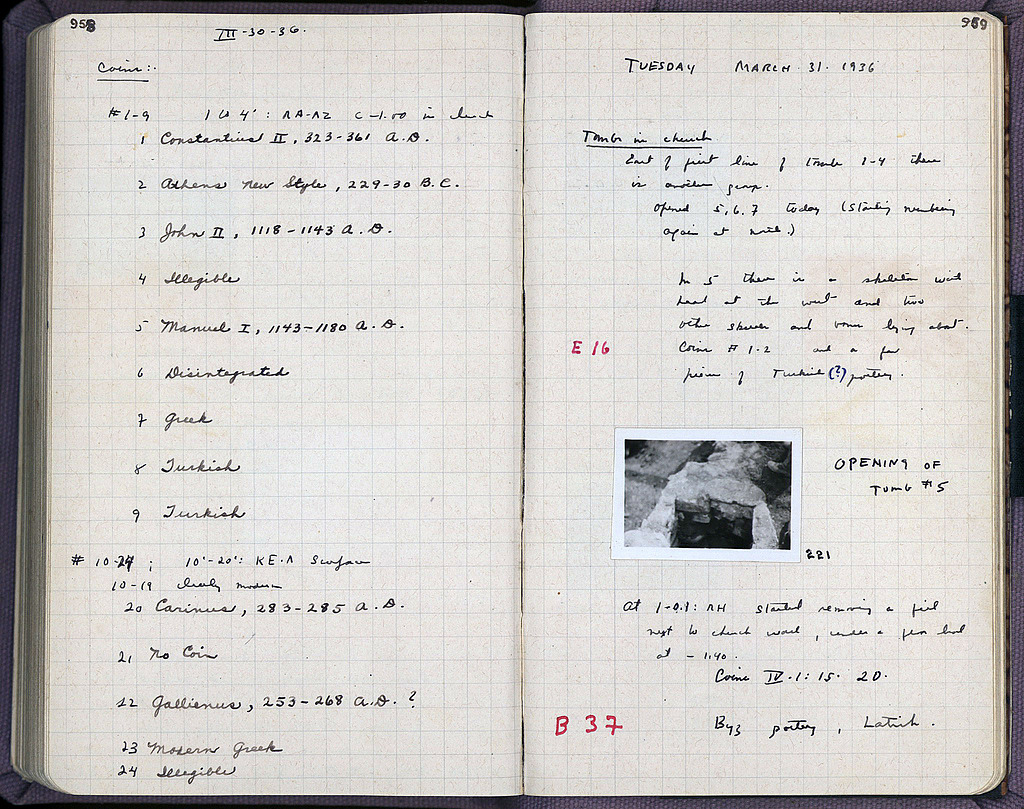 958
III-30-36.
Coins:.
#1-9 1 to 4': ΛΑ-ΛΖ C-1.00 in church
1 Constantius II, 323-361 A.D.
2 Athens New Style, 229-30 B.C.
3 John II, 1118-1143 A.D.
4 Illegible
5 Manuel I, 1143-1180 A.D.
6 Disintegrated
7 Greek
8 Turkish
9 Turkish
# 10-24; 10'-20': KE-Λ Surface
10-19 clearly modern
20 Carinus, 283-285 A.D.
21 No Coin
22 Gallienus, 253-268 A.D. ?
23 Modern Greek
24 Illegible
959
TUESDAY MARCH 31. 1936
Tombs in church
East of first line of tombs 1-4 there
is another group.
Opened 5, 6, 7 today (starting numbering
again at north.)
In 5 there is a skeleton with
head at the west and two
other skulls and bones lying about.
E 16
Coins # 1-2 and a few
pieces of Turkish (?) pottery.
OPENING OF
TOMB #5
221
At : ΛΗ started removing a fill
next to church wall, under a floor level
at - 1.40.
Coins IV.1: 15-20.
B 37
Byz pottery,